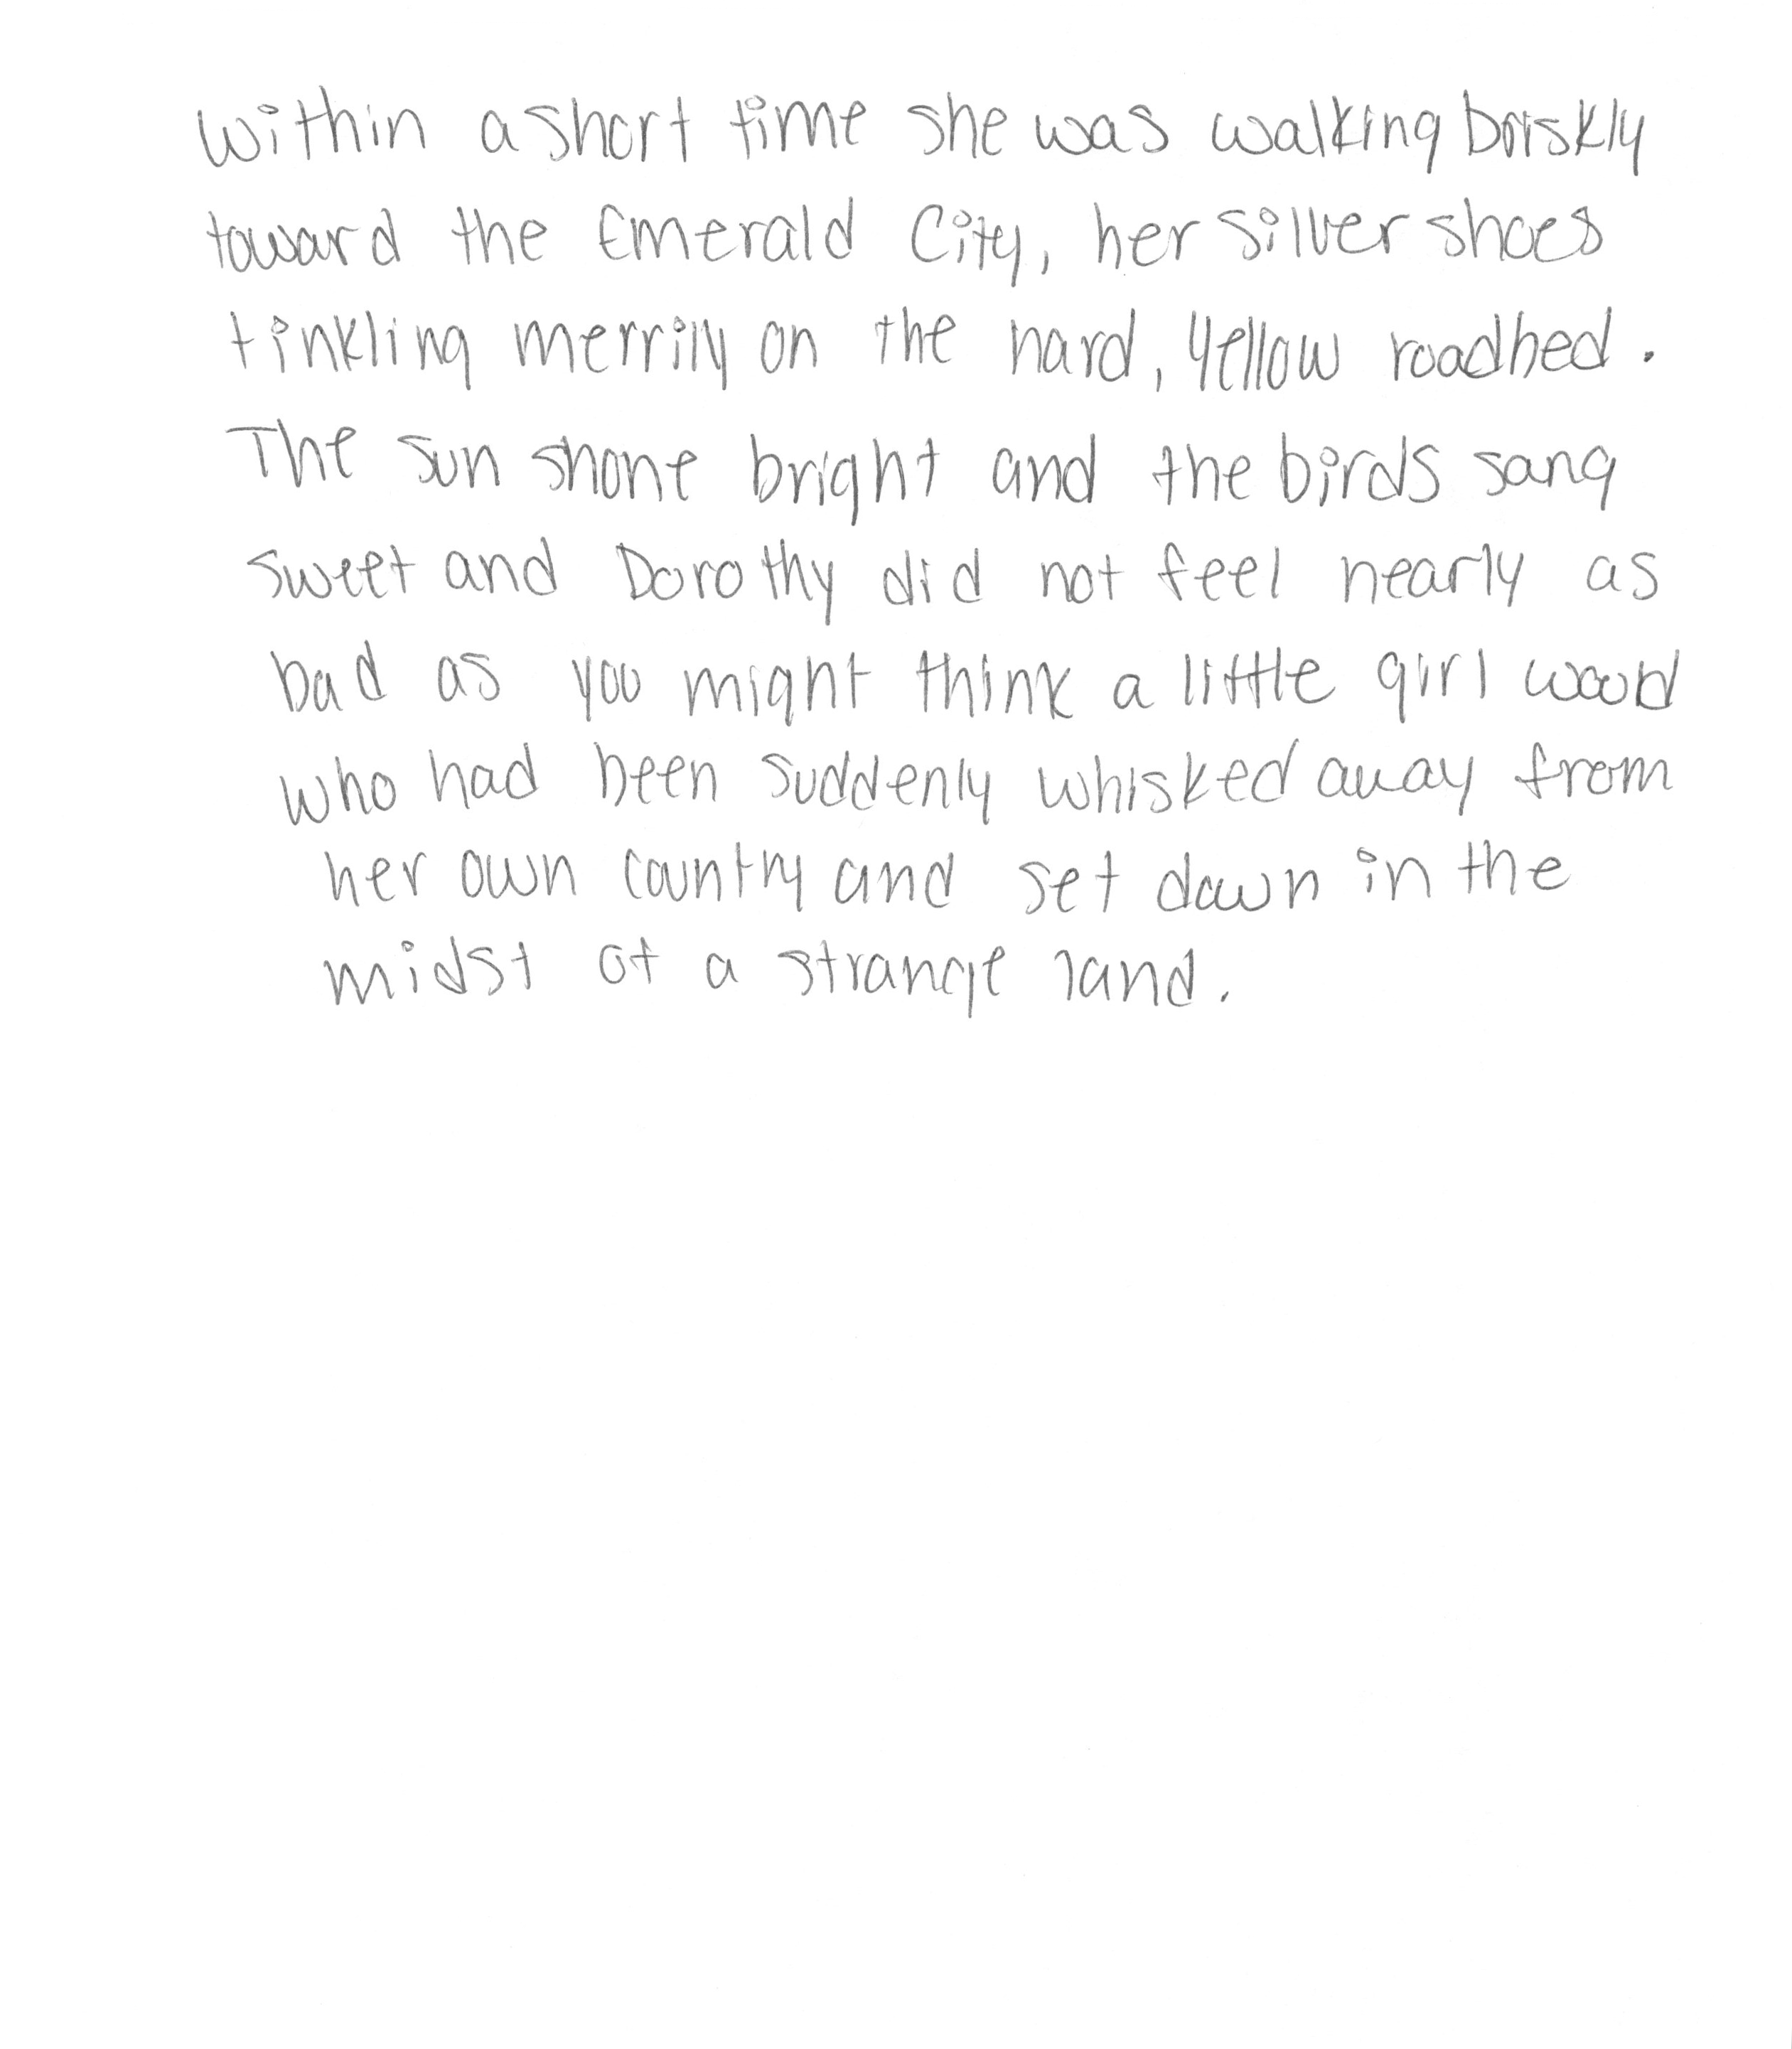 Within a short time she was walking briskly
toward the Emerald City, her silver shoes
tinkling merrily on the hard, yellow roadbed.
The sun shone bright and the birds sang
sweet and Dorothy did not feel nearly as
bad as you might think a little girl would
who had been suddenly whisked away from
her own country and set down in the
midst of a strange land.